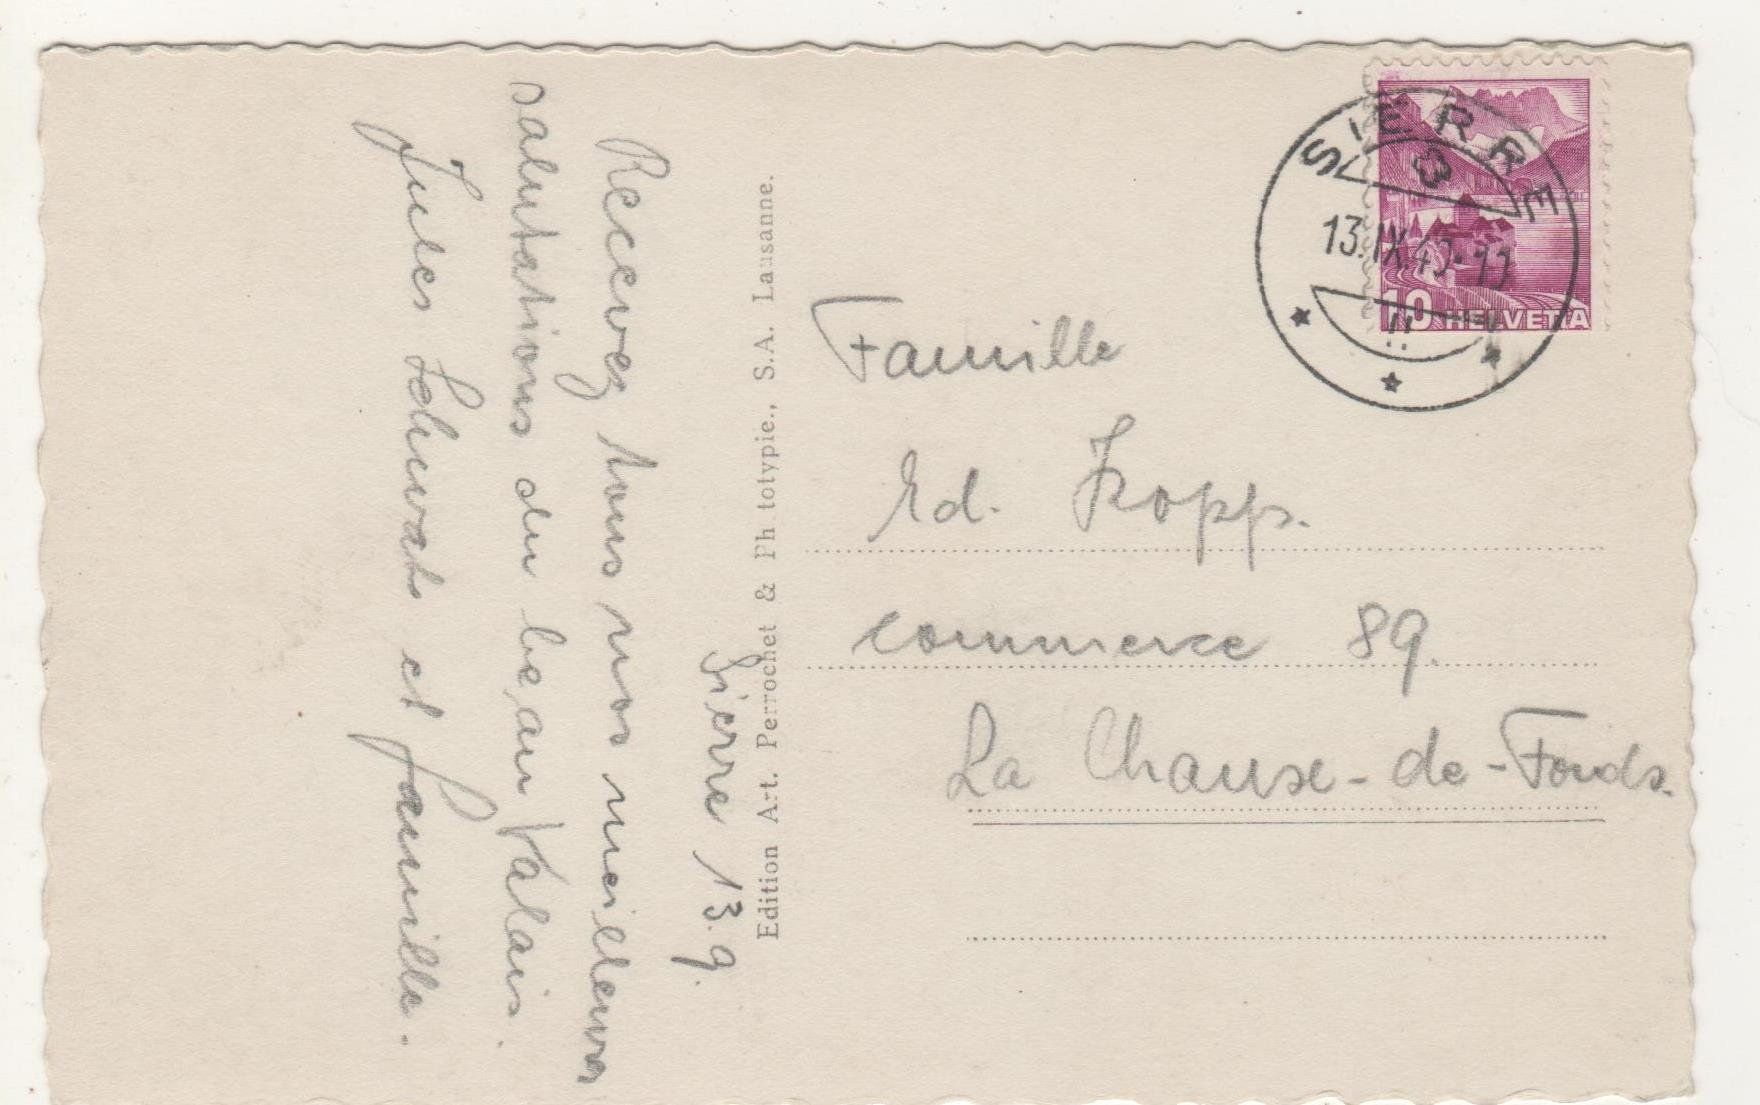 Sierre 13.9.
Recevez tous nos meilleures
salutations du beau Valais.
Jules et famille.
Edition Art. Perrochet & Ph totypie., S.A. Lausanne.
SIERRE
13.IX.4
10 HELVETIA
Famille
Ed. Kopp.
commerce 89.
La Chaux-de-Fonds.